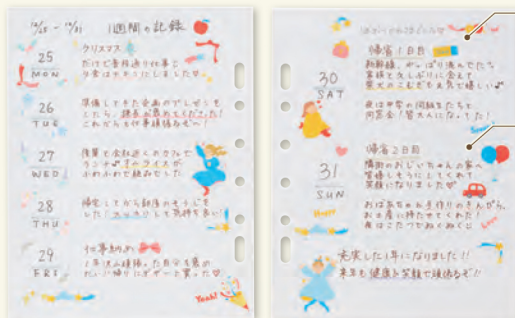 12/25 - 12/31 1週間の記録
25
MON
クリスマス
だけど普段通り仕事し
夕食はチキンにしました
26
TUE
準備してきた企画のプレゼンを
したら、課長が褒めてくださった!
これからも仕事頑張るぞ〜!
27
WED
後輩と会社近くのカフェで
ランチ オムライスが
ふわふわで絶品でした。
28
THU
帰宅してから部屋のそうじを
した! スッキリして気持ち良い!
29
FRI
仕事納め
1年沢山頑張った自分を褒め
たい 帰りにピザを買った
Yeah!
30
SAT
帰省1日目
新幹線、がっぱり混んでた
家族と久しぶりに会えて
元気で嬉しい
夜は中学の同級生たちと
同窓会! 皆大人になってた!
31
SUN
帰省2日目
隣街のおじいちゃんの家へ
皆嬉しそうにしてくれて
笑顔になりました
おばあちゃん手作りのきんぴら、
お土産に持たせてくれた!
夜はこたつでぬくぬく
Happy
Love
充実した1年になりました!!
来年も健康と笑顔で頑張るぞ!!